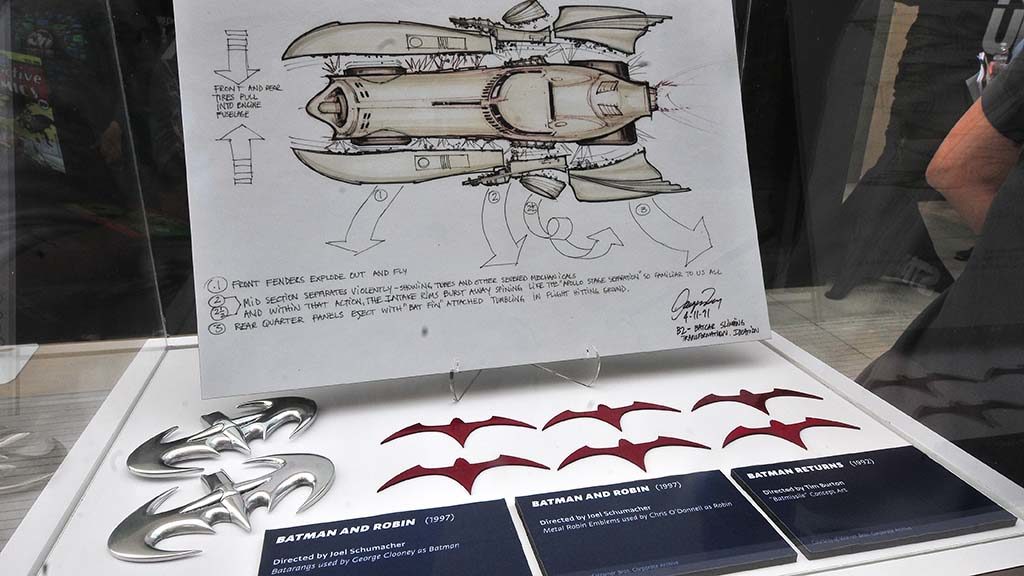 FRONT AND REAR
TIRES PULL
INTO ENGINE
FUSELAGE
1
2
2A
3
1 FRONT FENDERS EXPLODE OUT AND FLY
2 MID SECTION SEPARATES VIOLENTLY - SHOWING TUBES AND OTHER SEVERED MECHANICALS
AND WITHIN THAT ACTION, THE INTAKE RIMS BURST AWAY SPINING LIKE THE "APOLLO STAGE SEPARATION" SO FAMILIAR TO US ALL
3 REAR QUARTER PANELS EJECT WITH "BAT FIN" ATTACHED TUMBLING IN FLIGHT HITTING GROUND.
4-11-91
B2- BATCAR
TRANSFORMATION. IDEATION
BATMAN AND ROBIN (1997)
Directed by Joel Schumacher
Batarangs used by George Clooney as Batman
BATMAN AND ROBIN (1997)
Directed by Joel Schumacher
Metal Robin Emblems used by Chris O'Donnell as Robin
BATMAN RETURNS (1992)
Directed by Tim Burton
"Batmissle" Concept Art